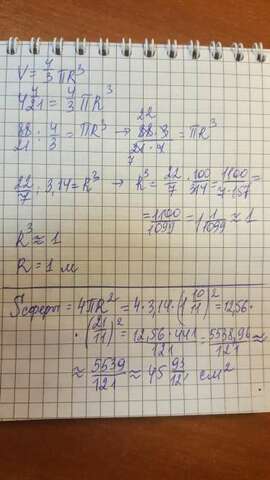 V = 4/3 πR³
4 4/21 = 4/3 πR³
88/21 : 4/3 = πR³ → 88·3/21·4 = πR³
22
7
22/7 : 3,14 = R³ → R³ = 22/7 · 100/314 = 1100/7·157 =
= 1100/1099 = 1 1/1099 ≈ 1
R³ ≈ 1
R = 1 м
Sсферы = 4πR² = 4·3,14·(1 10/11)² = 12,56·
·(21/11)² = 12,56·441/121 = 5538,96/121 ≈
≈ 5539/121 ≈ 45 93/121 см²